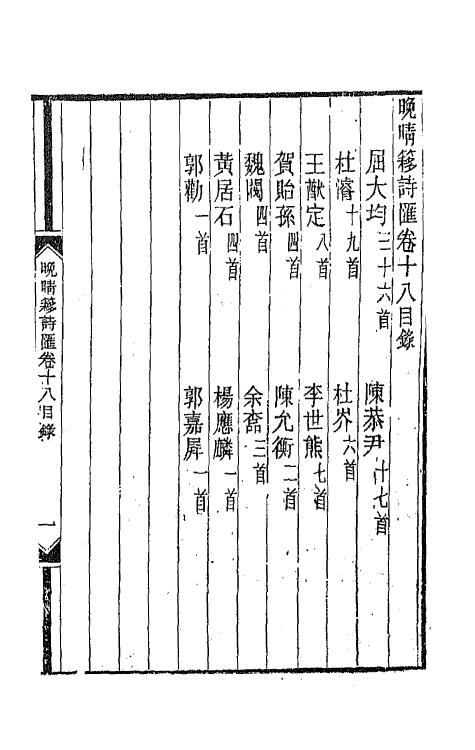 晚晴簃詩匯卷十八目錄
屈大均三十六首　陳恭尹十七首
杜濬十九首　杜岕六首
王猷定八首　李世熊七首
賀貽孫四首　陳允衡二首
魏閥四首　余𩡺三首
黃居石四首　楊應麟一首
郭勸一首　郭嘉屏一首
晚晴簃詩匯卷十八目錄
一